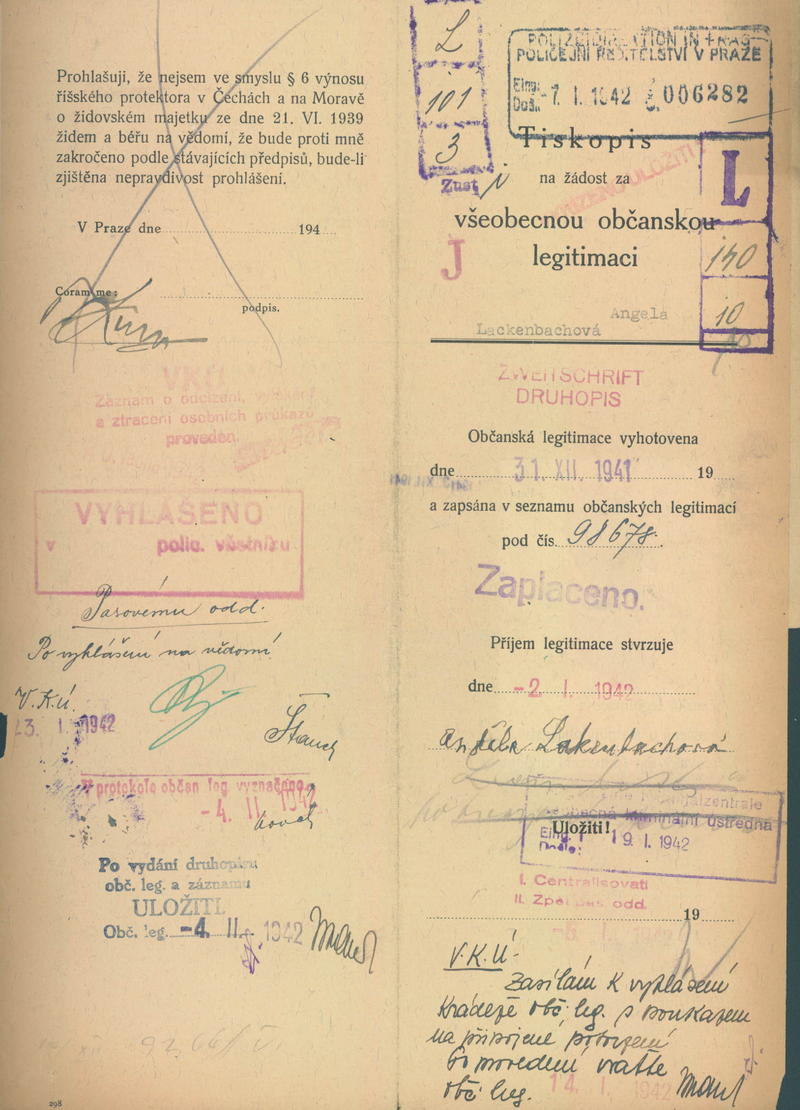 Prohlašuji, že nejsem ve smyslu § 6 výnosu
říšského protektora v Čechách a na Moravě
o židovském majetku ze dne 21. VI. 1939
židem a béřu na vědomí, že bude proti mně
zakročeno podle stávajících předpisů, bude-li
zjištěna nepravdivost prohlášení.
V Praze dne 194
Coram me:
podpis.
VKÚ
Záznam o odcizení,
a ztracení osobních průkazů
proveden.
VYHLÁŠENO
v polic. věstníku
Pasovému odd.
Po vyhlášení na vědomí
V.K.Ú.
3. I. 1942
V protokole občan leg vyznačeno
-4. II. 1942
Po vydání druhopisu
obč. leg. a záznamu
ULOŽITI.
Obč. leg. -4. II. 1942
298
L
101
3
Znst
POLIZEIDIREKTION IN PRAG
POLICEJNÍ ŘEDITELSTVÍ V PRAZE
Eing.
Doš. -7. I. 1942 006282
Tiskopis
na žádost za
všeobecnou občanskou
legitimaci
J
L
140
10
Angela
Lackenbachová
ZWEITSCHRIFT
DRUHOPIS
Občanská legitimace vyhotovena
dne 31. XII. 1941 19
a zapsána v seznamu občanských legitimací
pod čís. 98678.
Zaplaceno.
Příjem legitimace stvrzuje
dne -2. I. 1942
Anděla Lakenbachová
Uložiti!
kriminální ústředna
19. I. 1942
I. Centralisovati
II. Zpět pas. odd.
19
V.K.Ú.
Zasílám k vyhlášení
krádeže obč. leg. s poukazem
na připojené potvrzení
Po provedení vraťte
obč. leg. 14. I. 1942